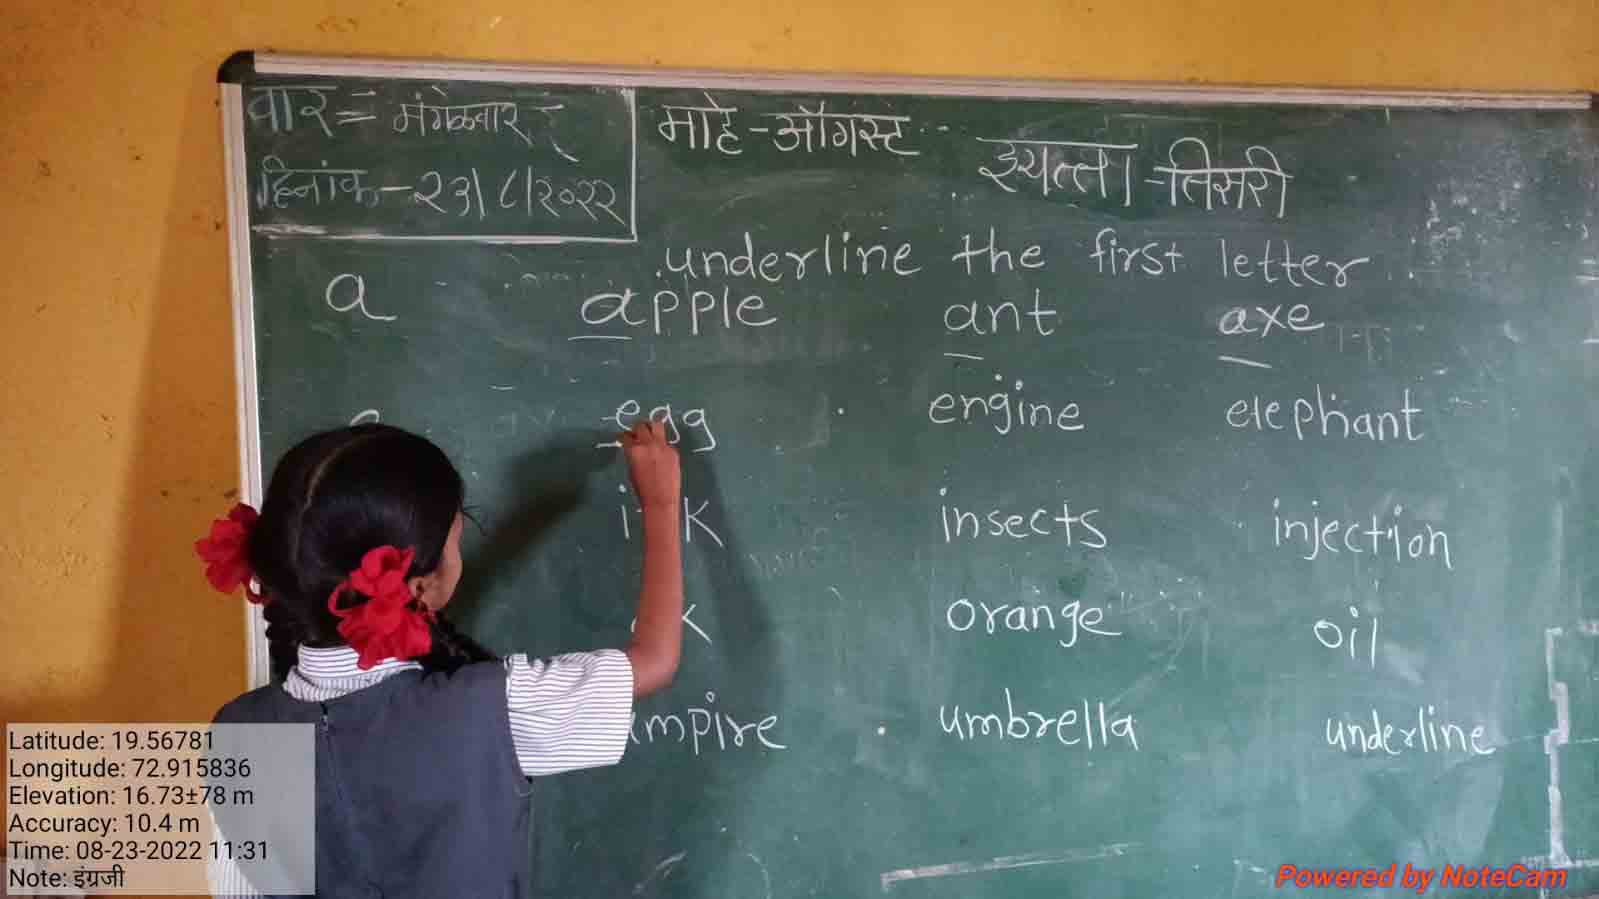 वार = मंगळवार
दिनांक - २३/८/२०२२
माहे - ऑगस्ट
इयत्ता - तिसरी
underline the first letter
a apple ant axe
egg engine elephant
insects injection
orange oil
umpire umbrella underline
Latitude: 19.56781
Longitude: 72.915836
Elevation: 16.73±78 m
Accuracy: 10.4 m
Time: 08-23-2022 11:31
Note: इंग्रजी
Powered by NoteCam